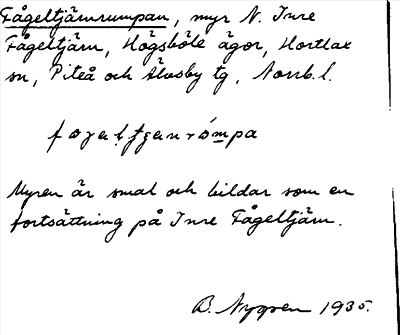 Fågeltjärnrumpan, myr N. Inre
Fågeltjärn, Högsböle ägor, Hortlax
sn, Piteå och Älvsby tg, Norrb. l.
Myren är smal och bildar som en
fortsättning på Inre Fågeltjärn.
B. Nygren 1935.